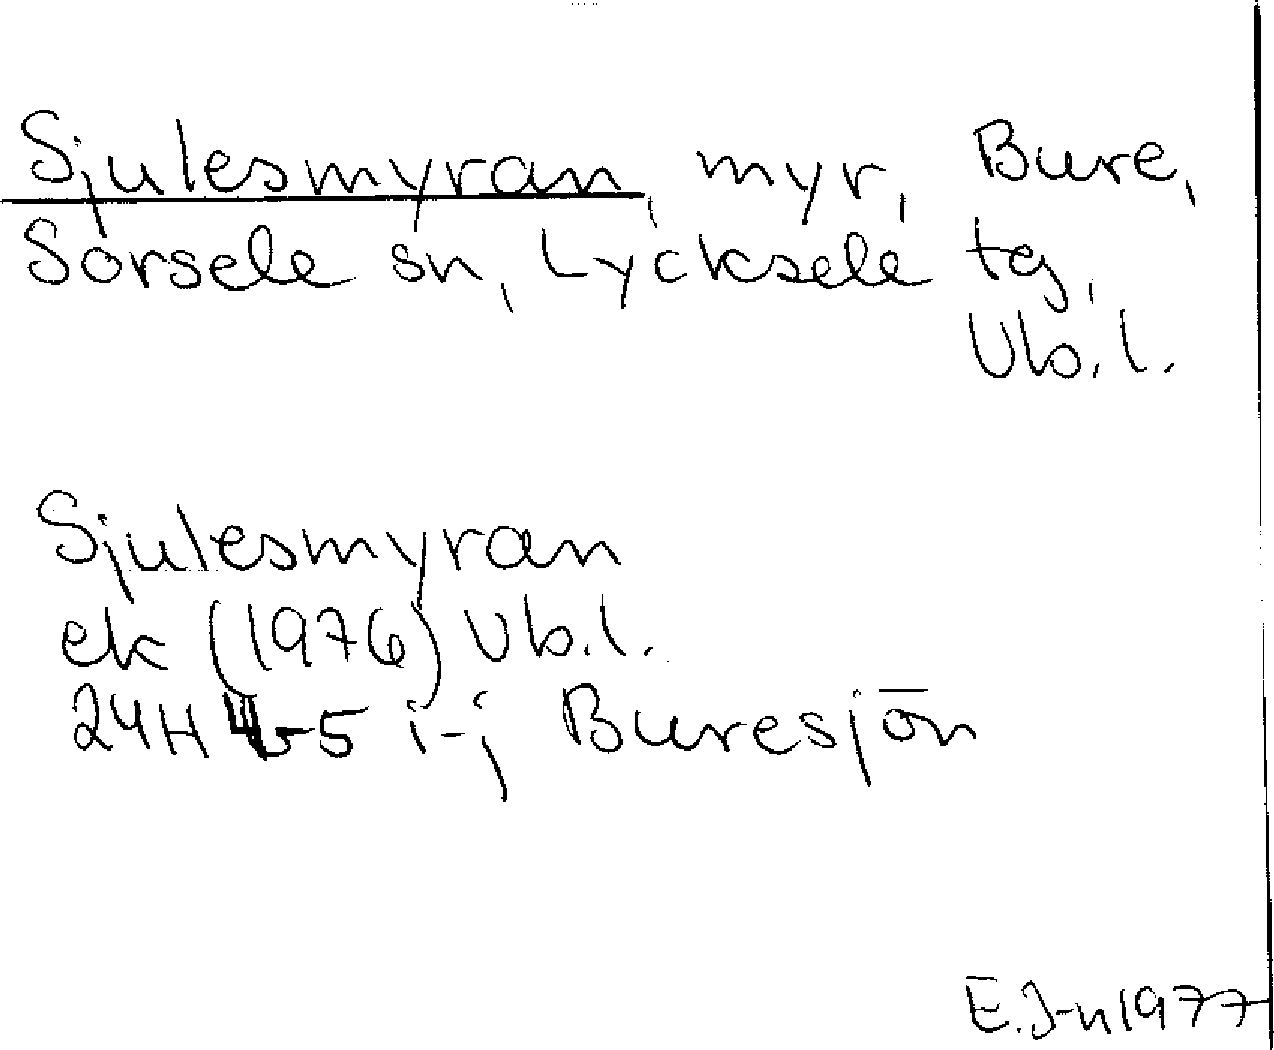 Sjulesmyran, myr, Bure,
Sorsele sn, Lycksele tg,
Vb.l.
Sjulesmyran
ek (1976) Vb.l.
24H 4-5 i-j Buresjön
E.J-n 1977